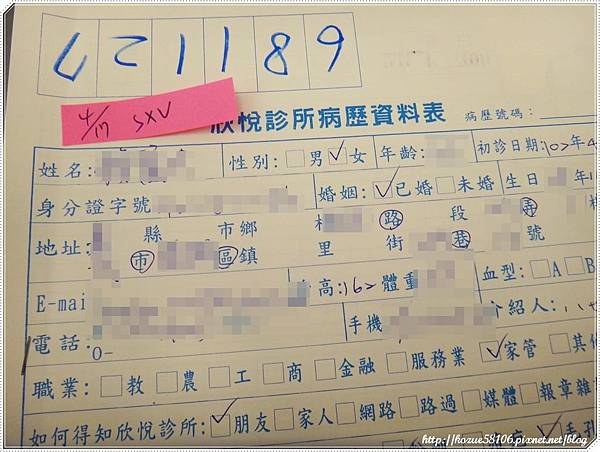 721189
4/17 SXV
欣悅診所病歷資料表 病歷號碼:
姓名: 性別:□男☑女 年齡: 初診日期:102年4
身分證字號 婚姻:☑已婚□未婚 生日 年1
縣 市鄉 村 路 段 弄
地址: 市 區鎮 里 街 巷 號
E-mai 高:162 體重 血型:□A□B
電話: 手機 介紹人:
0-
職業:□教□農□工□商□金融□服務業☑家管□其他
如何得知欣悅診所:☑朋友□家人□網路□路過□媒體□報章雜
手孔
http://hozue58106.pixnet.net/blog